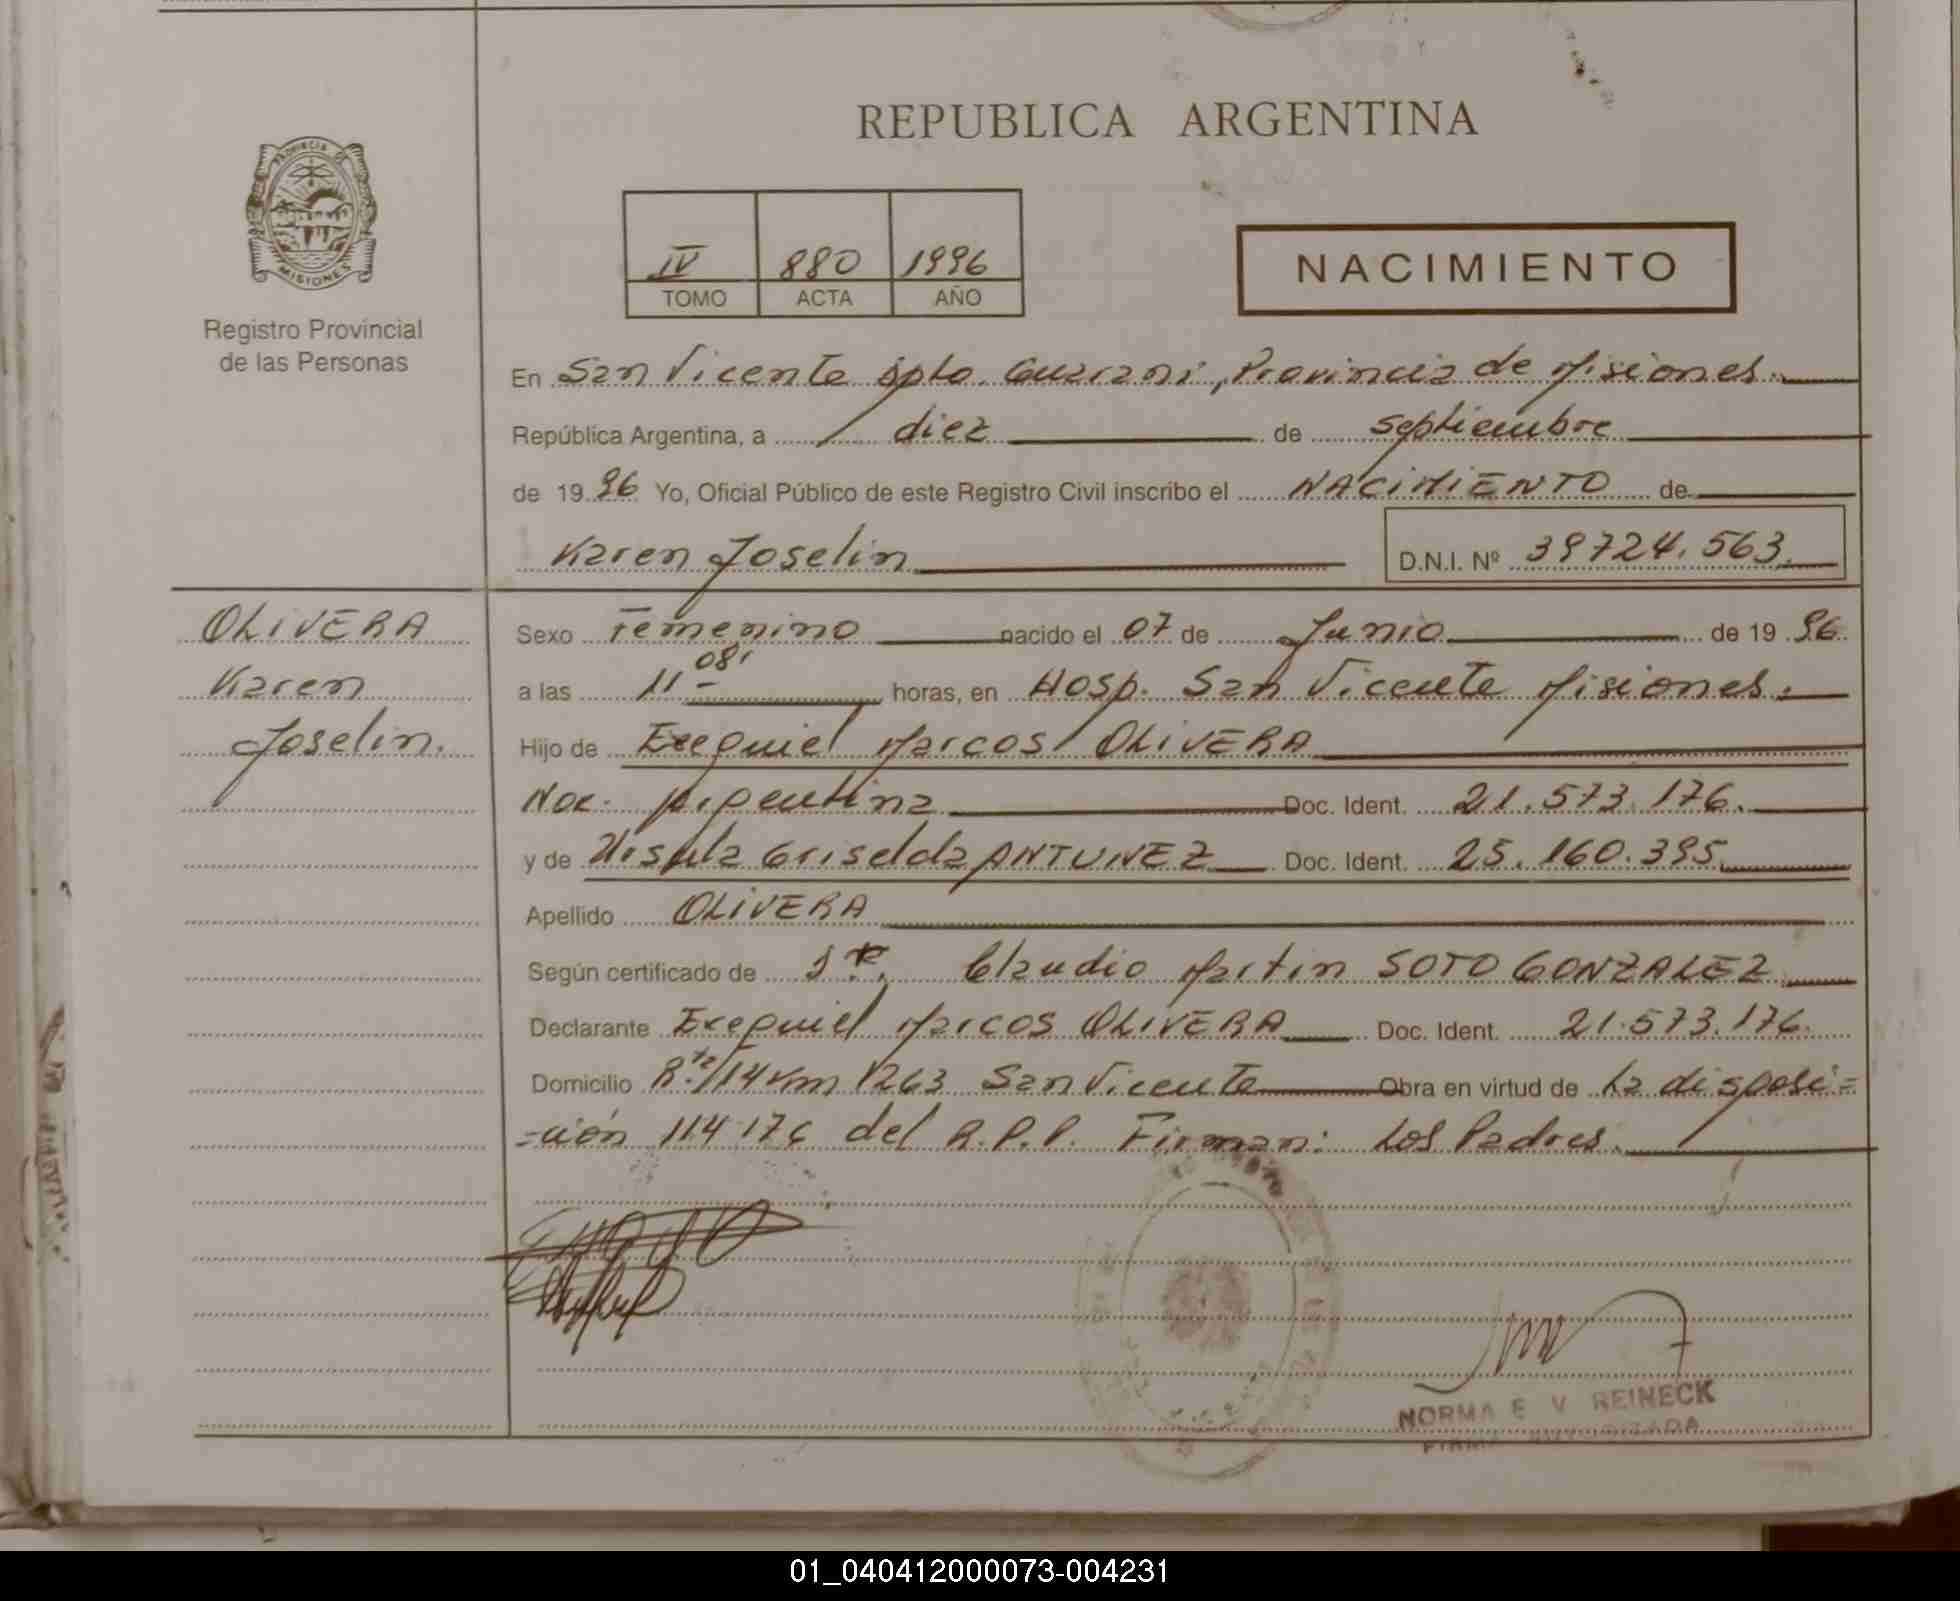 REPUBLICA ARGENTINA
PROVINCIA DE
MISIONES
Registro Provincial
de las Personas
IV 880 1996
TOMO ACTA AÑO
NACIMIENTO
En San Vicente Dpto. Guarani, Provincia de Misiones.
República Argentina, a diez de septiembre
de 1996 Yo, Oficial Público de este Registro Civil inscribo el NACIMIENTO de
Karen Joselin D.N.I. Nº 39724.563.
OLIVERA
Karen
Joselin.
Sexo Femenino nacido el 07 de Junio de 1996.
a las 11 08' horas, en Hosp. San Vicente Misiones.
Hijo de Exequiel Marcos OLIVERA
Nac. Argentina Doc. Ident. 21.573.176.
y de Ursula Griselda ANTUNEZ Doc. Ident. 25.160.395.
Apellido OLIVERA
Según certificado de Claudio Martin SOTO GONZALEZ
Declarante Exequiel Marcos OLIVERA Doc. Ident. 21.573.176.
Domicilio R. 14 Km 1263 San Vicente Obra en virtud de La disposi=
=ción 114 176 del R.P.P. Firman: Los Padres.
NORMA E V REINECK
FIRMA AUTORIZADA
01_040412000073-004231